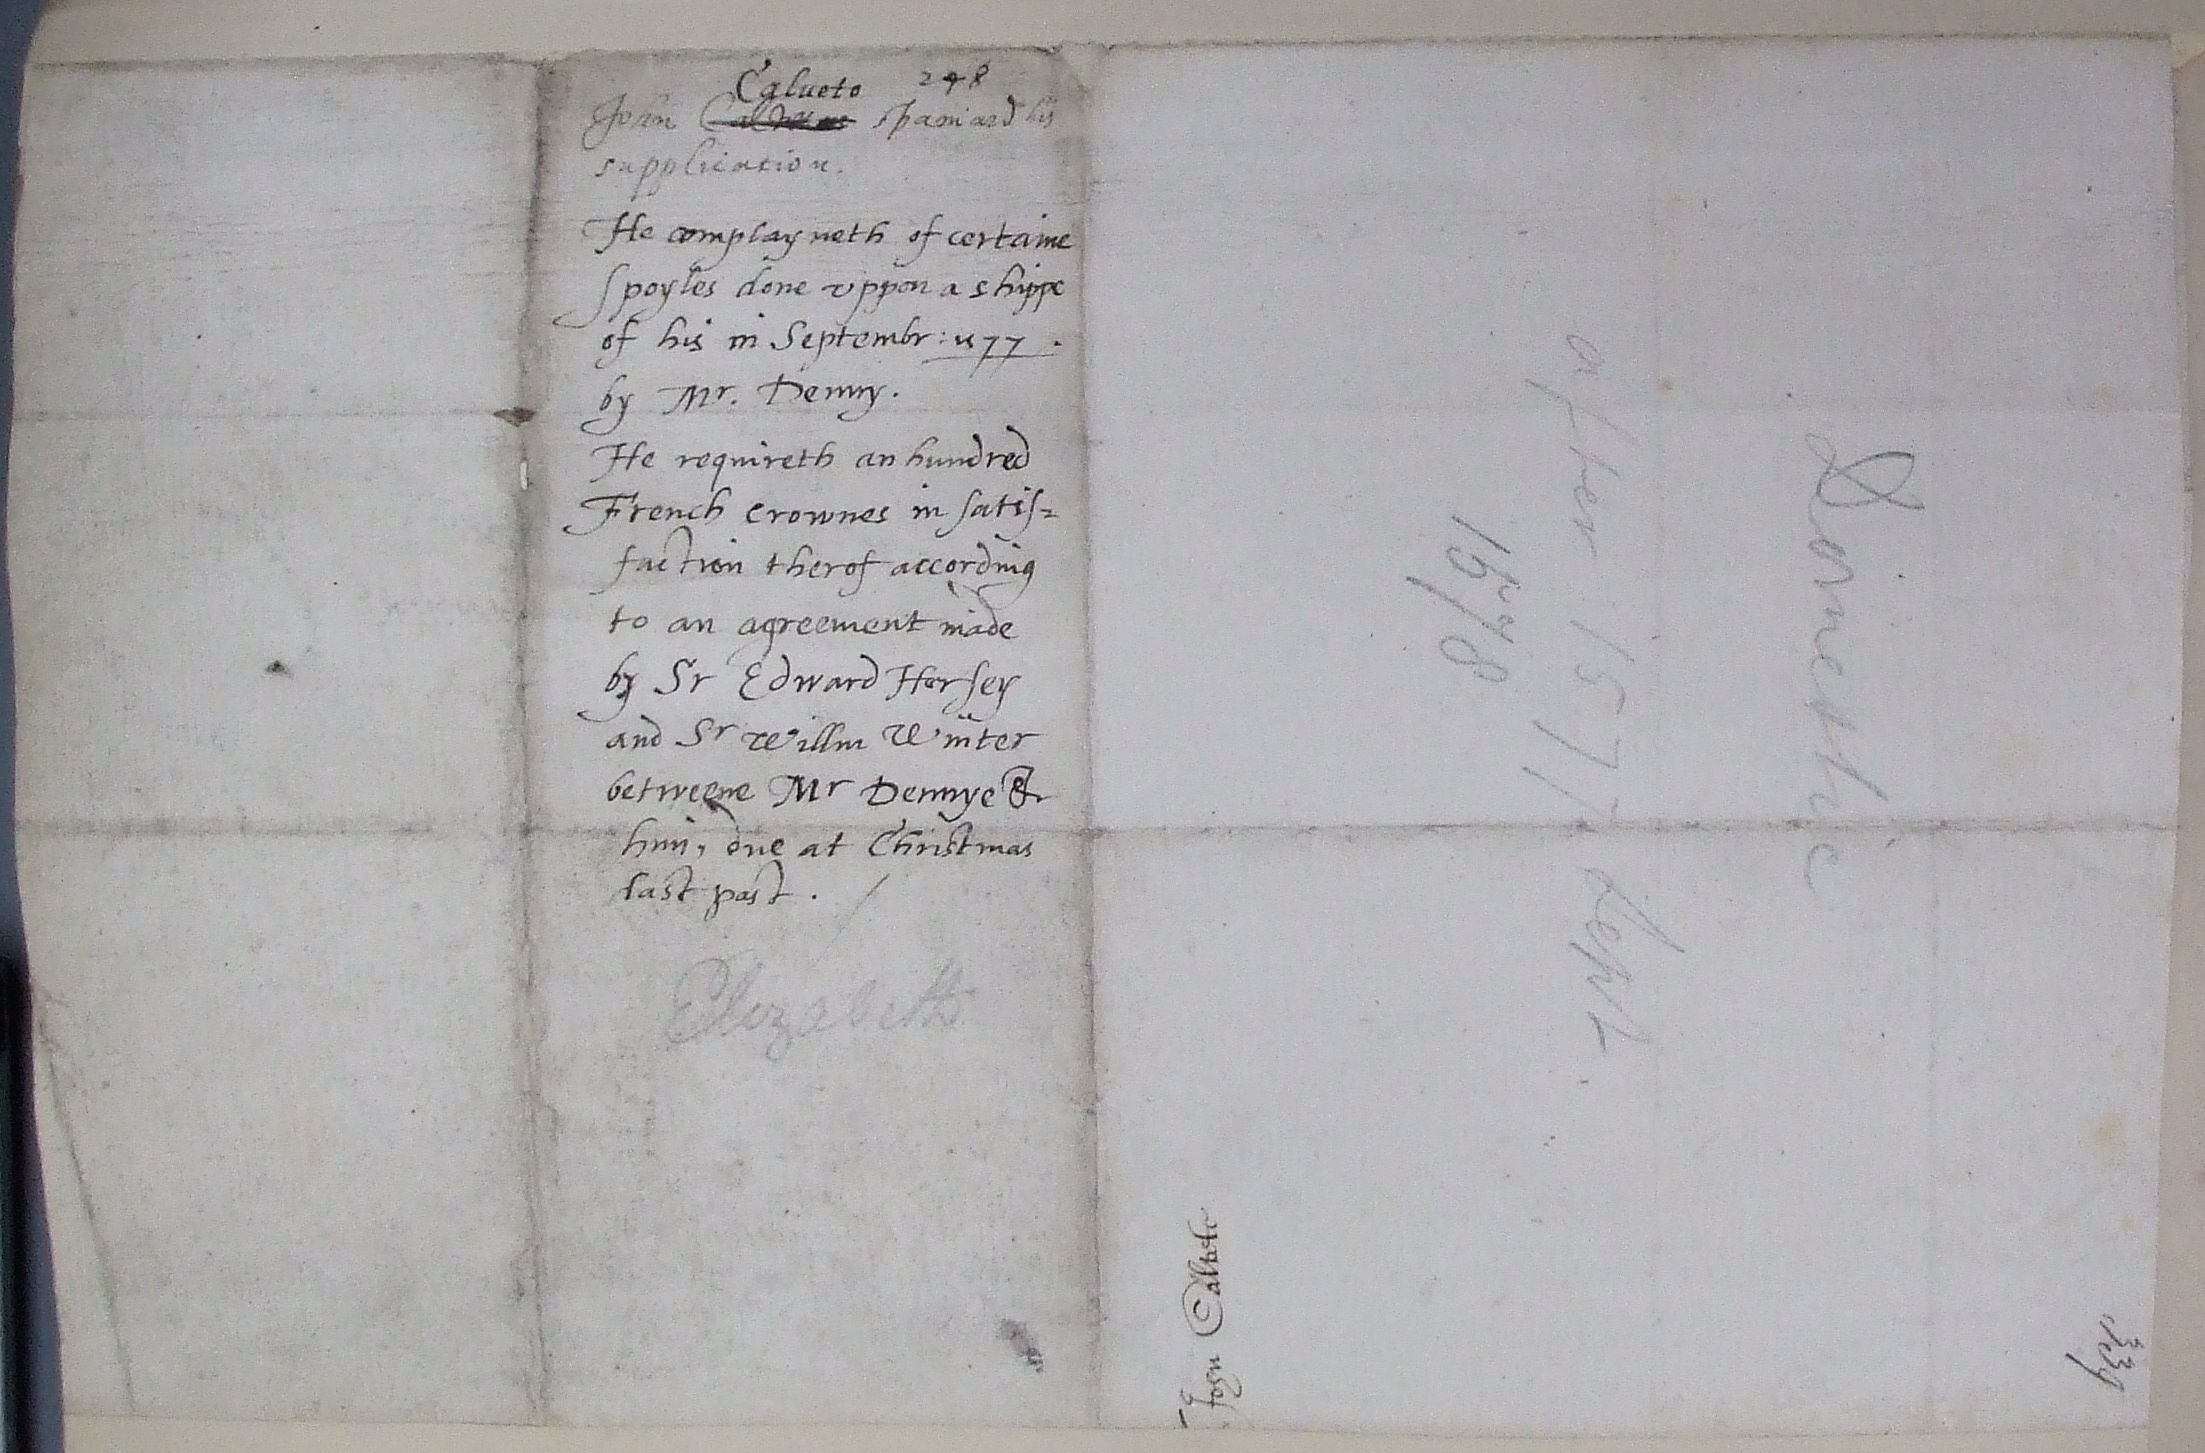 Calueto 248
John Spaniard his
supplication.
He complayneth of certaine
spoyles done vppon a shippe
of his in Septembr: 1577.
by Mr. Denny.
He requireth an hundred
French crownes in satis=
faction therof according
to an agreement made
by Sr Edward Horsey
and Sr Willm Winter
betweene Mr Dennye &
him, due at Christmas
last past.
Elizabeth
John Calueto
1578
after 1577 Sept.
Domestic